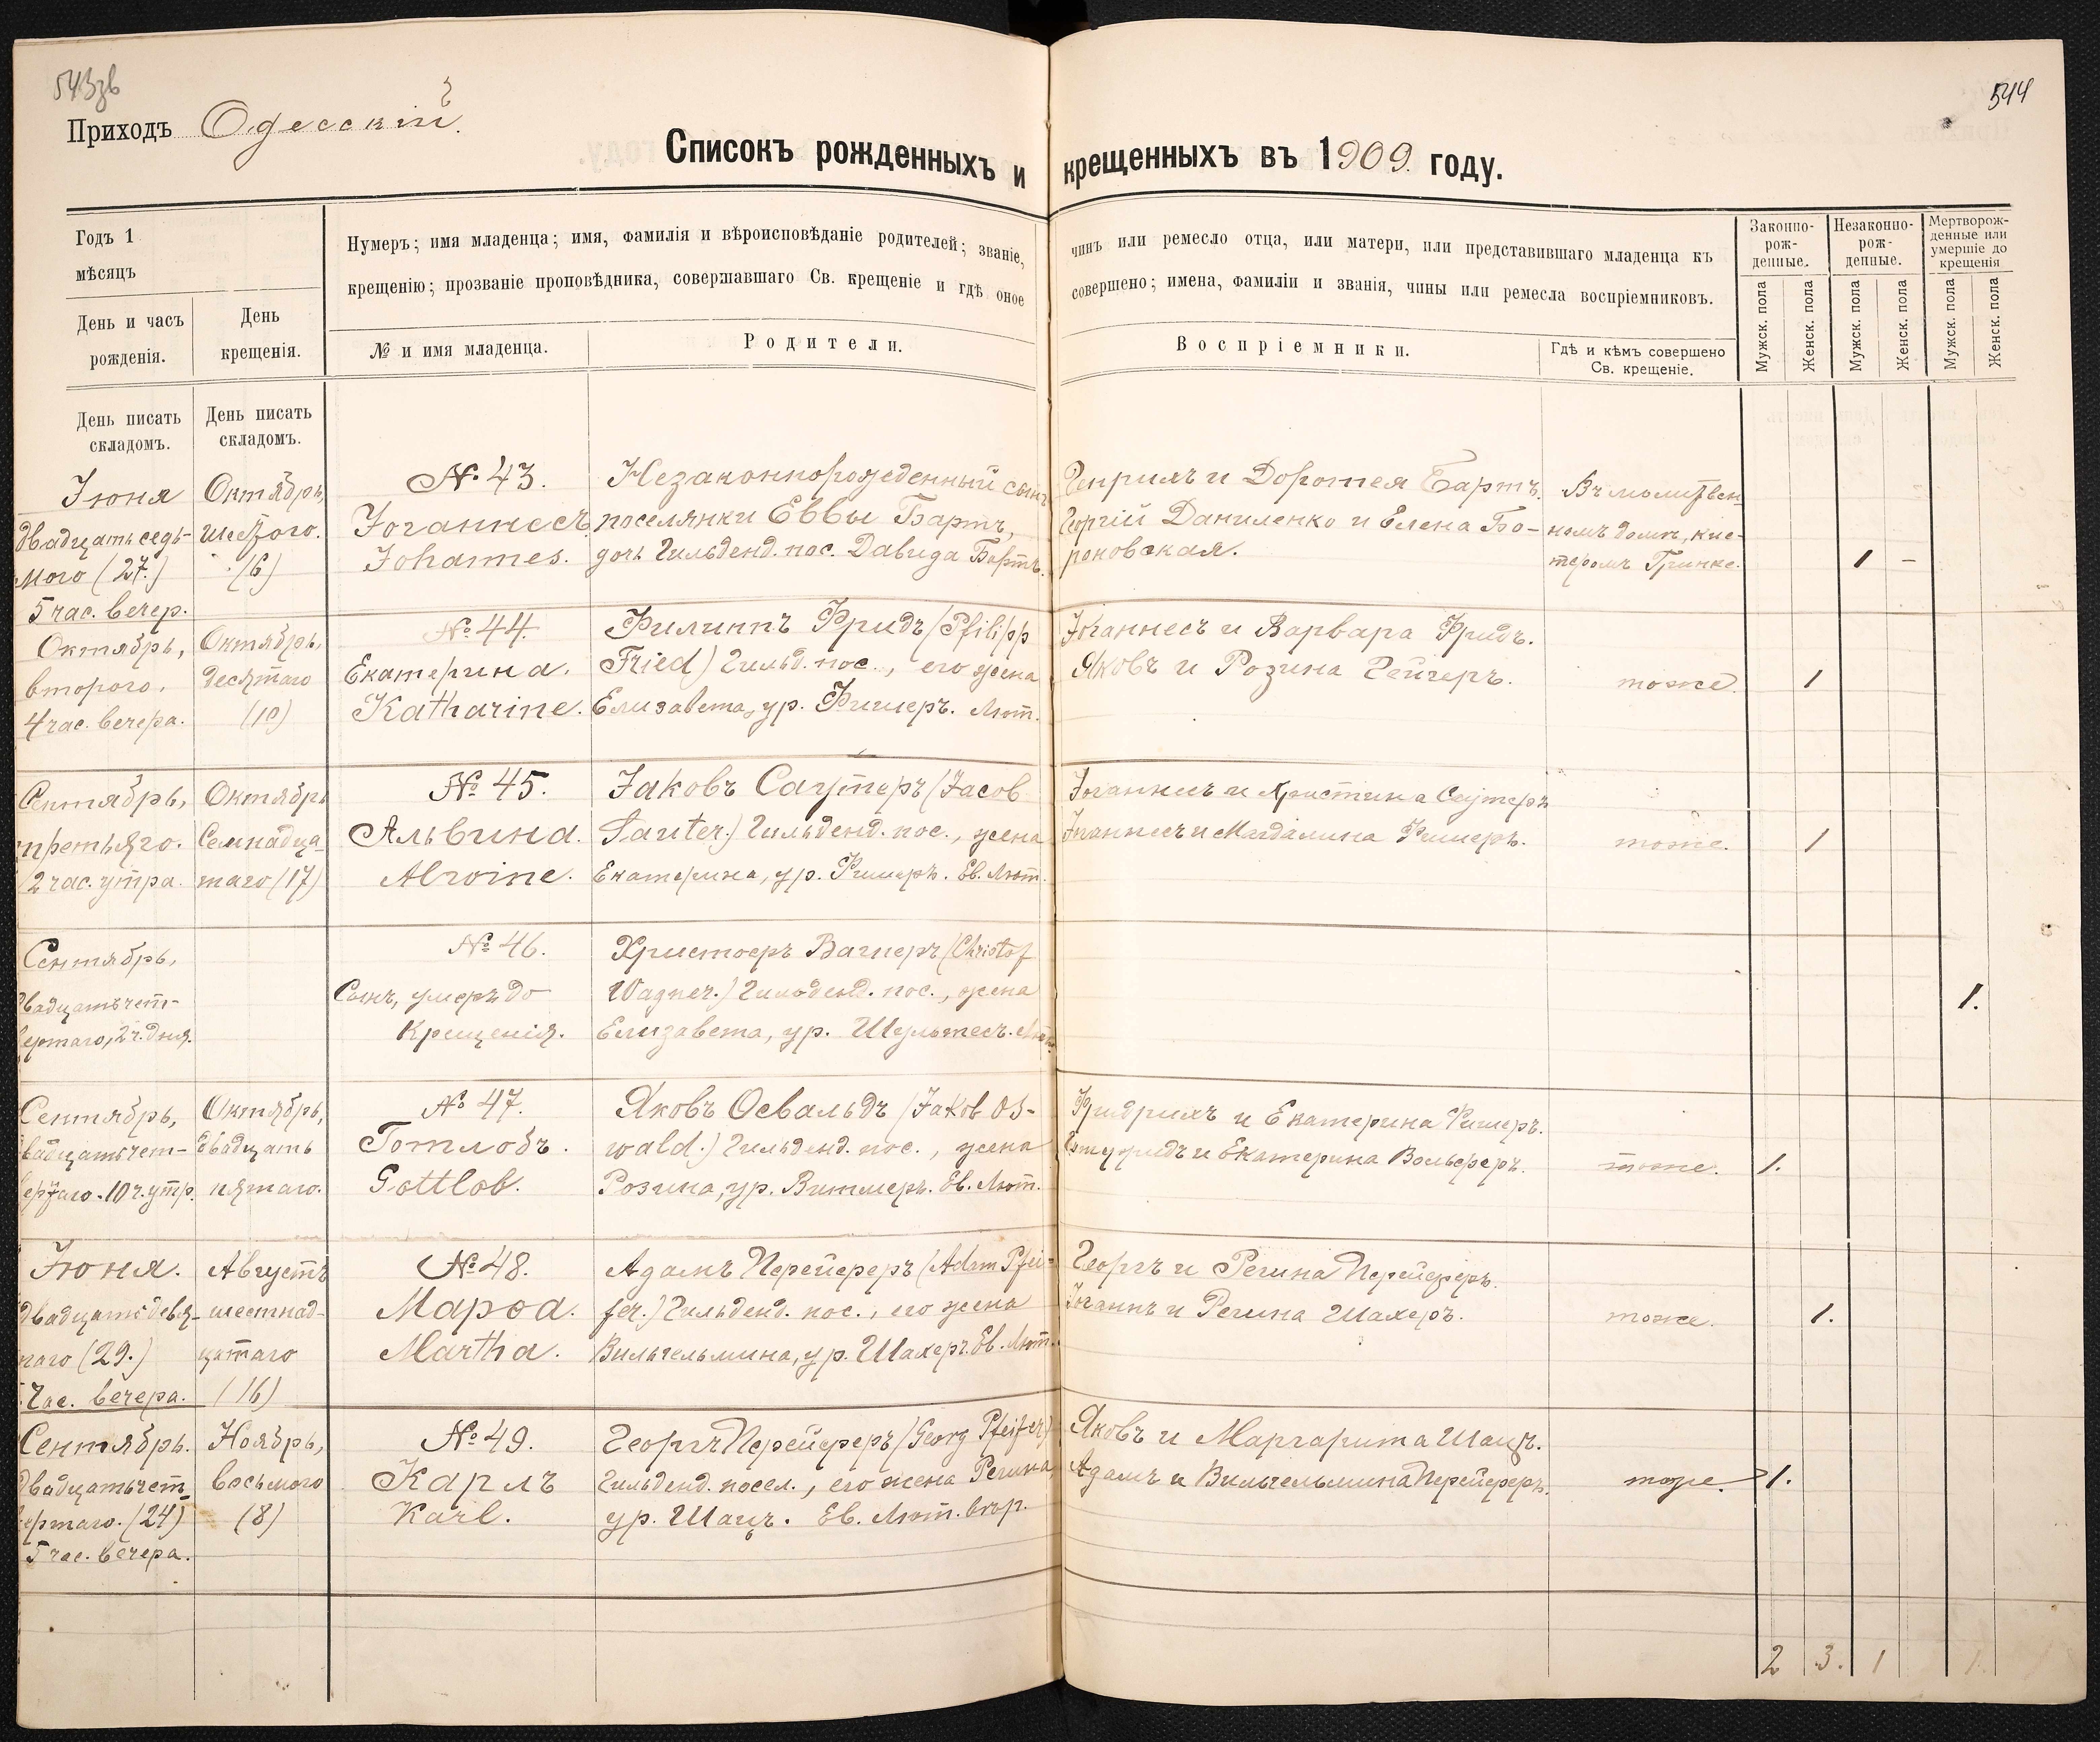 543
Приходъ Одесскій.
544
Списокъ рожденныхъ и крещенныхъ въ 1909. году.
Годъ 1
мѣсяцъ
День и часъ
рожденія.
День
крещенія.
Нумеръ; имя младенца; имя, фамилія и вѣроисповѣданіе родителей; званіе,
крещенію; прозваніе проповѣдника, совершавшаго Св. крещеніе и гдѣ оное
№ и имя младенца.
Родители.
чинъ или ремесло отца, или матери, или представившаго младенца къ
совершено; имена, фамиліи и званія, чины или ремесла воспріемниковъ.
Воспріемники.
Гдѣ и кѣмъ совершено
Св. крещеніе.
Законно-
рож-
денные.
Незаконно-
рож-
денные.
Мертворож-
денные или
умершіе до
крещенія
Мужск. пола
Женск. пола
Мужск. пола
Женск. пола
Мужск. пола
Женск. пола
День писать
складомъ.
День писать
складомъ.
Іюня
двадцать седь-
мого (27.)
5 час. вечер.
Октябрь,
шестого.
(6)
№ 43.
Іоганнесъ
Johannes.
Незаконнорожденный сынъ
поселянки Еввы Бартъ,
дочь Гильденд. пос. Давида Бартъ.
Генрихъ и Доротея Бартъ.
Георгій Даниленко и Елена Бо-
роновская.
Въ молитвен
номъ домѣ, кис-
теромъ Гринке.
1 –
Октябрь,
второго.
4 час. вечера.
Октябрь,
десятаго
(10)
№ 44.
Екатерина.
Katharine.
Филиппъ Фридъ (Pfilipp
Fried) Гильд. пос., его жена
Елизавета, ур. Фишеръ. Лют.
Іоганнесъ и Варвара Фридъ.
Яковъ и Розина Гейгеръ.
тоже.
1
Сентябрь,
третьяго.
2 час. утра.
Октябрь
Семнадца
таго (17)
№ 45.
Альвина.
Alwine.
Іаковъ Саутеръ (Jacob
Sauter.) Гильденд. пос., жена
Екатерина, ур. Фишеръ. Ев. Лют.
Іоганнесъ и Христина Саутеръ
Іоганнесъ и Магдалина Фишеръ.
тоже.
1
Сентябрь,
двадцатьчет-
вертаго, 2 ч. дня.
№ 46.
Сынъ, умеръ до
Крещенія.
Христоферъ Вагнеръ (Christof
Wagner.) Гильденд. пос., жена
Елизавета, ур. Шультесъ. Лют.
1.
Сентябрь,
двадцатьчет-
вертаго. 10 ч. утр.
Октябрь,
двадцать
пятаго.
№ 47.
Готлобъ.
Gottlob.
Яковъ Освальдъ (Jakob Os-
wald.) Гильденд. пос., жена
Розина, ур. Витмеръ. Ев. Лют.
Фридрихъ и Екатерина Фишеръ.
и Екатерина Вольферъ.
тоже.
1.
Іюня.
двадцатьдевя-
таго (29.)
час. вечера.
Августъ
шестнад-
цатаго
(16)
№ 48.
Марѳа.
Martha.
Адамъ Пфейферъ (Adam Pfei-
fer.) Гильденд. пос., его жена
Вильгельмина, ур. Шахеръ. Ев. Лют.
Георгъ и Регина Пфейферъ.
Іоганнъ и Регина Шахеръ.
тоже.
1.
Сентябрь.
двадцатьчет
вертаго. (24)
5 час. вечера.
Ноябрь,
восьмого
(8)
№ 49.
Карлъ
Karl.
Георгъ Пфейферъ (Georg Pfeifer)
Гильденд. посел., его жена Регина,
ур. Шацъ. Ев. Лют. вѣр.
Яковъ и Маргарита Шацъ.
Адамъ и Вильгельмина Пфейферъ.
тоже.
1.
2 3. 1 1.